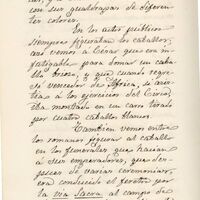 con sus gualdrapas de diferen-
tes colores.
En los actos públicos
siempre figuraban los caballos,
así vemos a César que era in-
fatigable para domar un caba-
llo brioso, y que cuando regre-
só vencedor de África, se
a los ejercicios del Circo,
iba montado en un carro tirado
por cuatro caballos blancos.
También vemos entre
los romanos figurar al caballo
en los funerales que hacían
a sus emperadores, que des-
pués de varias ceremonias,
era conducido el féretro por
la via Sacra, al campo de